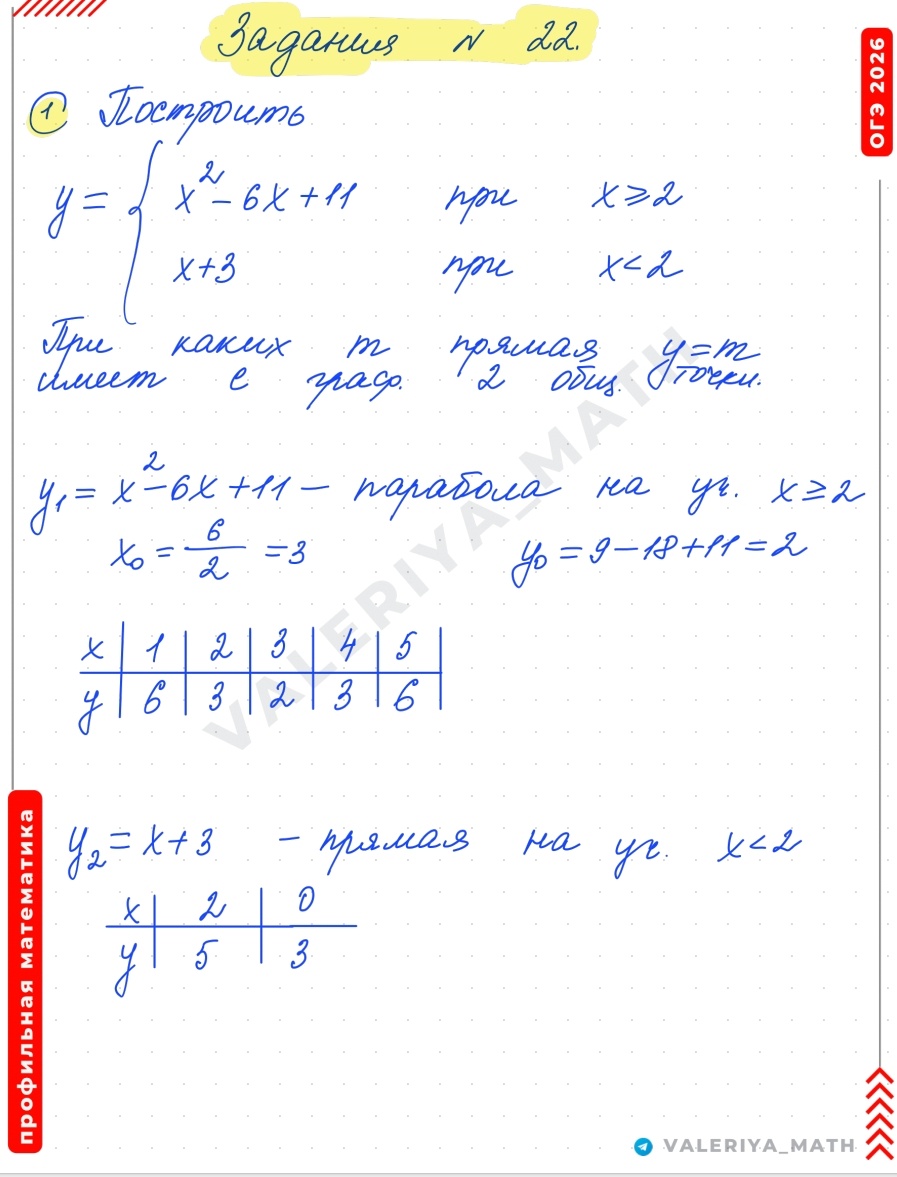 Задания N 22.
ОГЭ 2026
1 Построить
y = { x² - 6x + 11 при x ≥ 2
x + 3 при x < 2
При каких m прямая y = m
имеет с граф. 2 общ. точки.
y₁ = x² - 6x + 11 – парабола на уч. x ≥ 2
x₀ = 6/2 = 3 y₀ = 9 - 18 + 11 = 2
x | 1 | 2 | 3 | 4 | 5 |
y | 6 | 3 | 2 | 3 | 6 |
y₂ = x + 3 – прямая на уч. x < 2
x | 2 | 0
y | 5 | 3
VALERIYA_MATH
профильная математика
VALERIYA_MATH